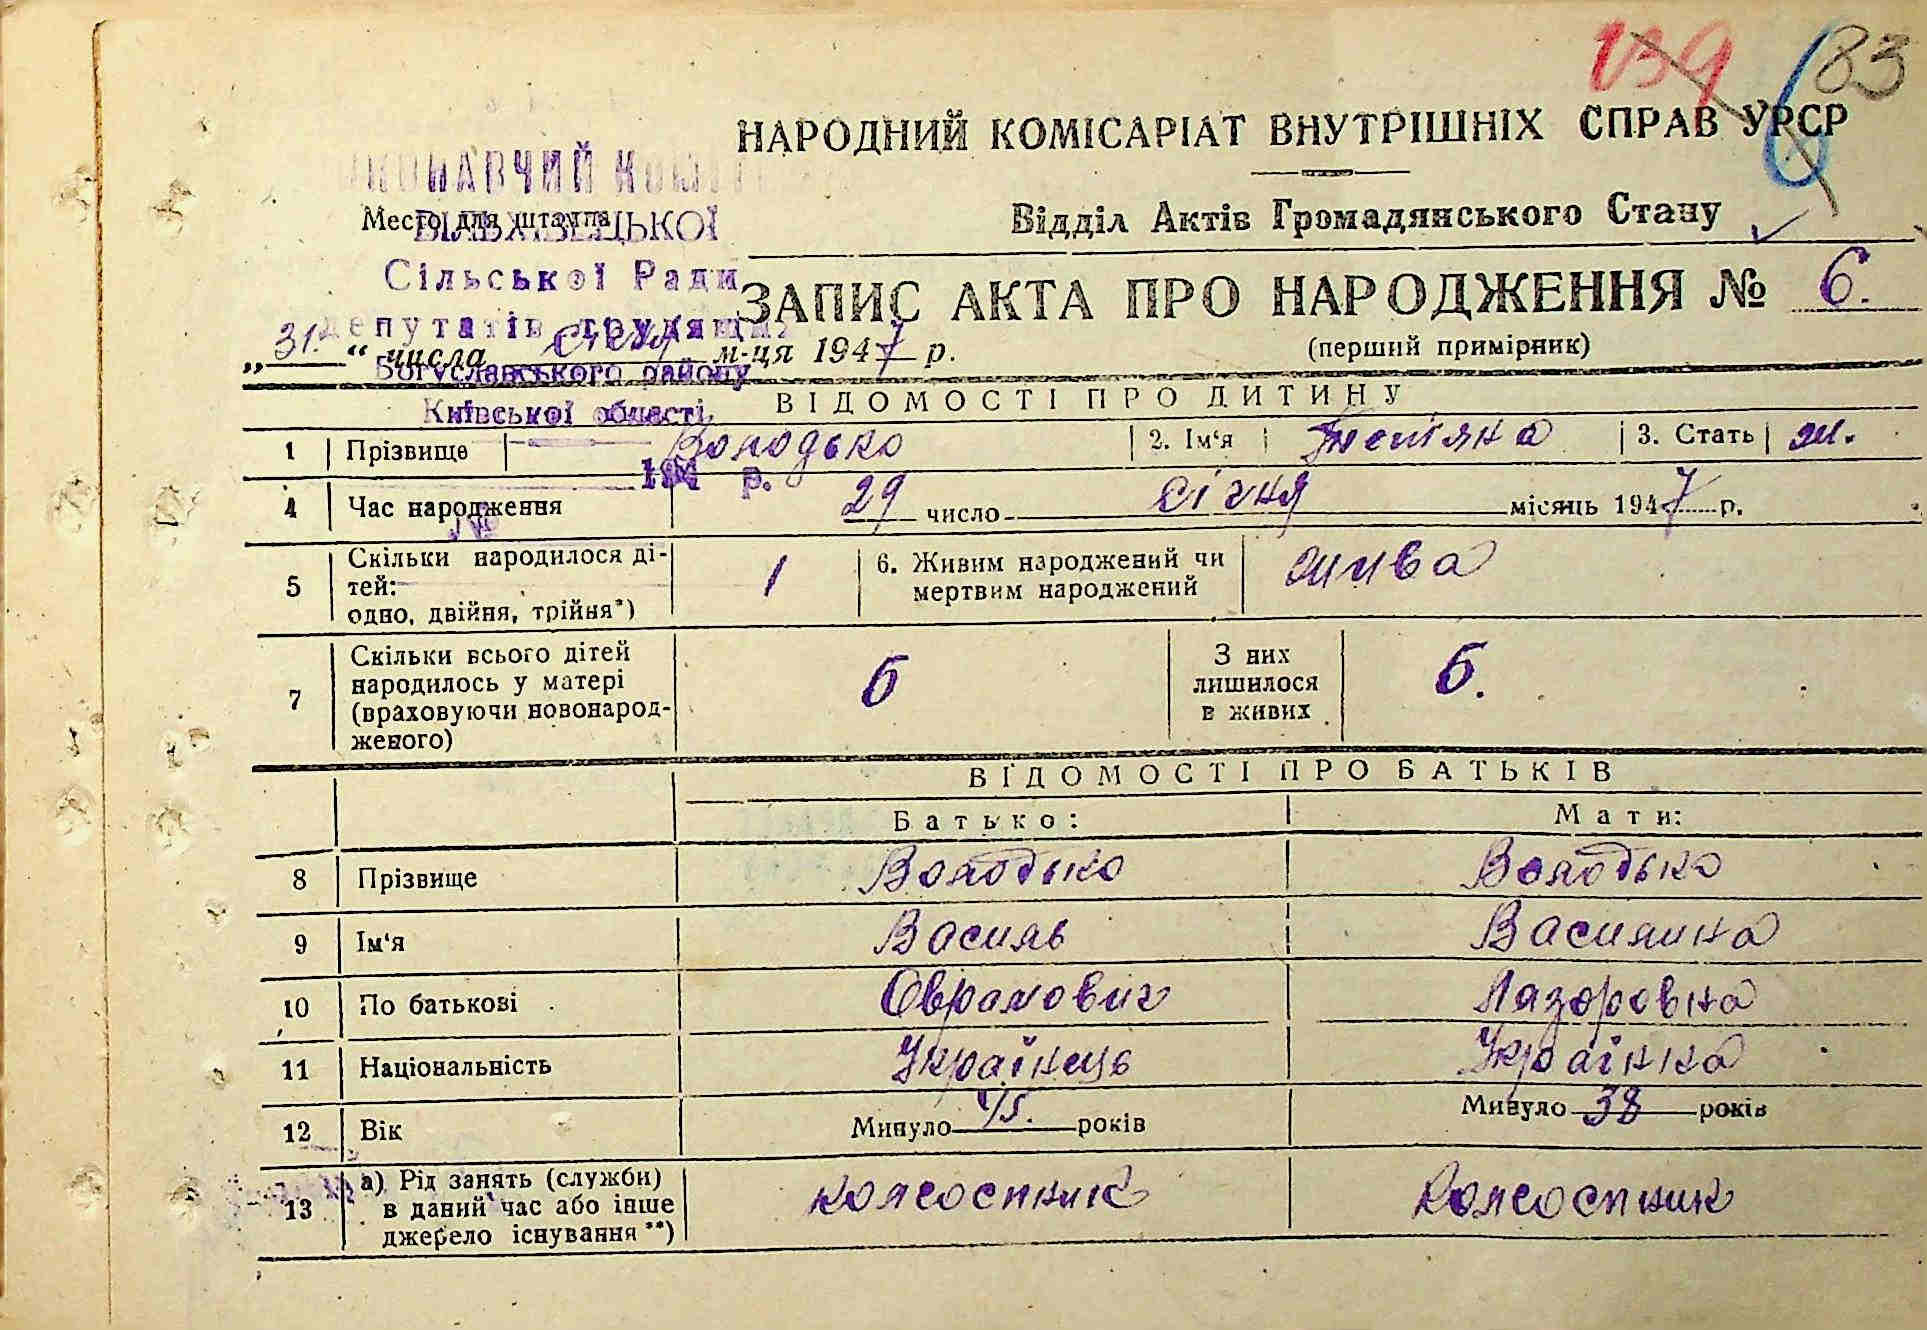 139 83
6
НАРОДНИЙ КОМІСАРІАТ ВНУТРІШНІХ СПРАВ УРСР
ВИКОНАВЧИЙ КОМІТЕТ
Место для штампа
Відділ Актів Громадянського Стану
Сільської Ради
депутатів трудящих
ЗАПИС АКТА ПРО НАРОДЖЕННЯ № 6.
„31." числа січня м-ця 1947 р.
(перший примірник)
Богуславського району
Київської області
ВІДОМОСТІ ПРО ДИТИНУ
1 Прізвище Володько 2. Ім'я Тетяна 3. Стать ж.
194 р.
4 Час народження 29 число січня місяць 1947 р.
№
5 Скільки народилося ді-
тей:
одно, двійня, трійня*) 1 6. Живим народжений чи
мертвим народжений жива
7 Скільки всього дітей
народилось у матері
(враховуючи новонарод-
женого) 6 З них
лишилося
в живих 6.
ВІДОМОСТІ ПРО БАТЬКІВ
Батько: Мати:
8 Прізвище Володько Володько
9 Ім'я Василь Василина
10 По батькові Оврамович Лазоровна
11 Національність Українець Українка
12 Вік Минуло 45. років Минуло 38 років
13 а) Рід занять (служби)
в даний час або інше
джерело існування**) колгоспник колгоспник